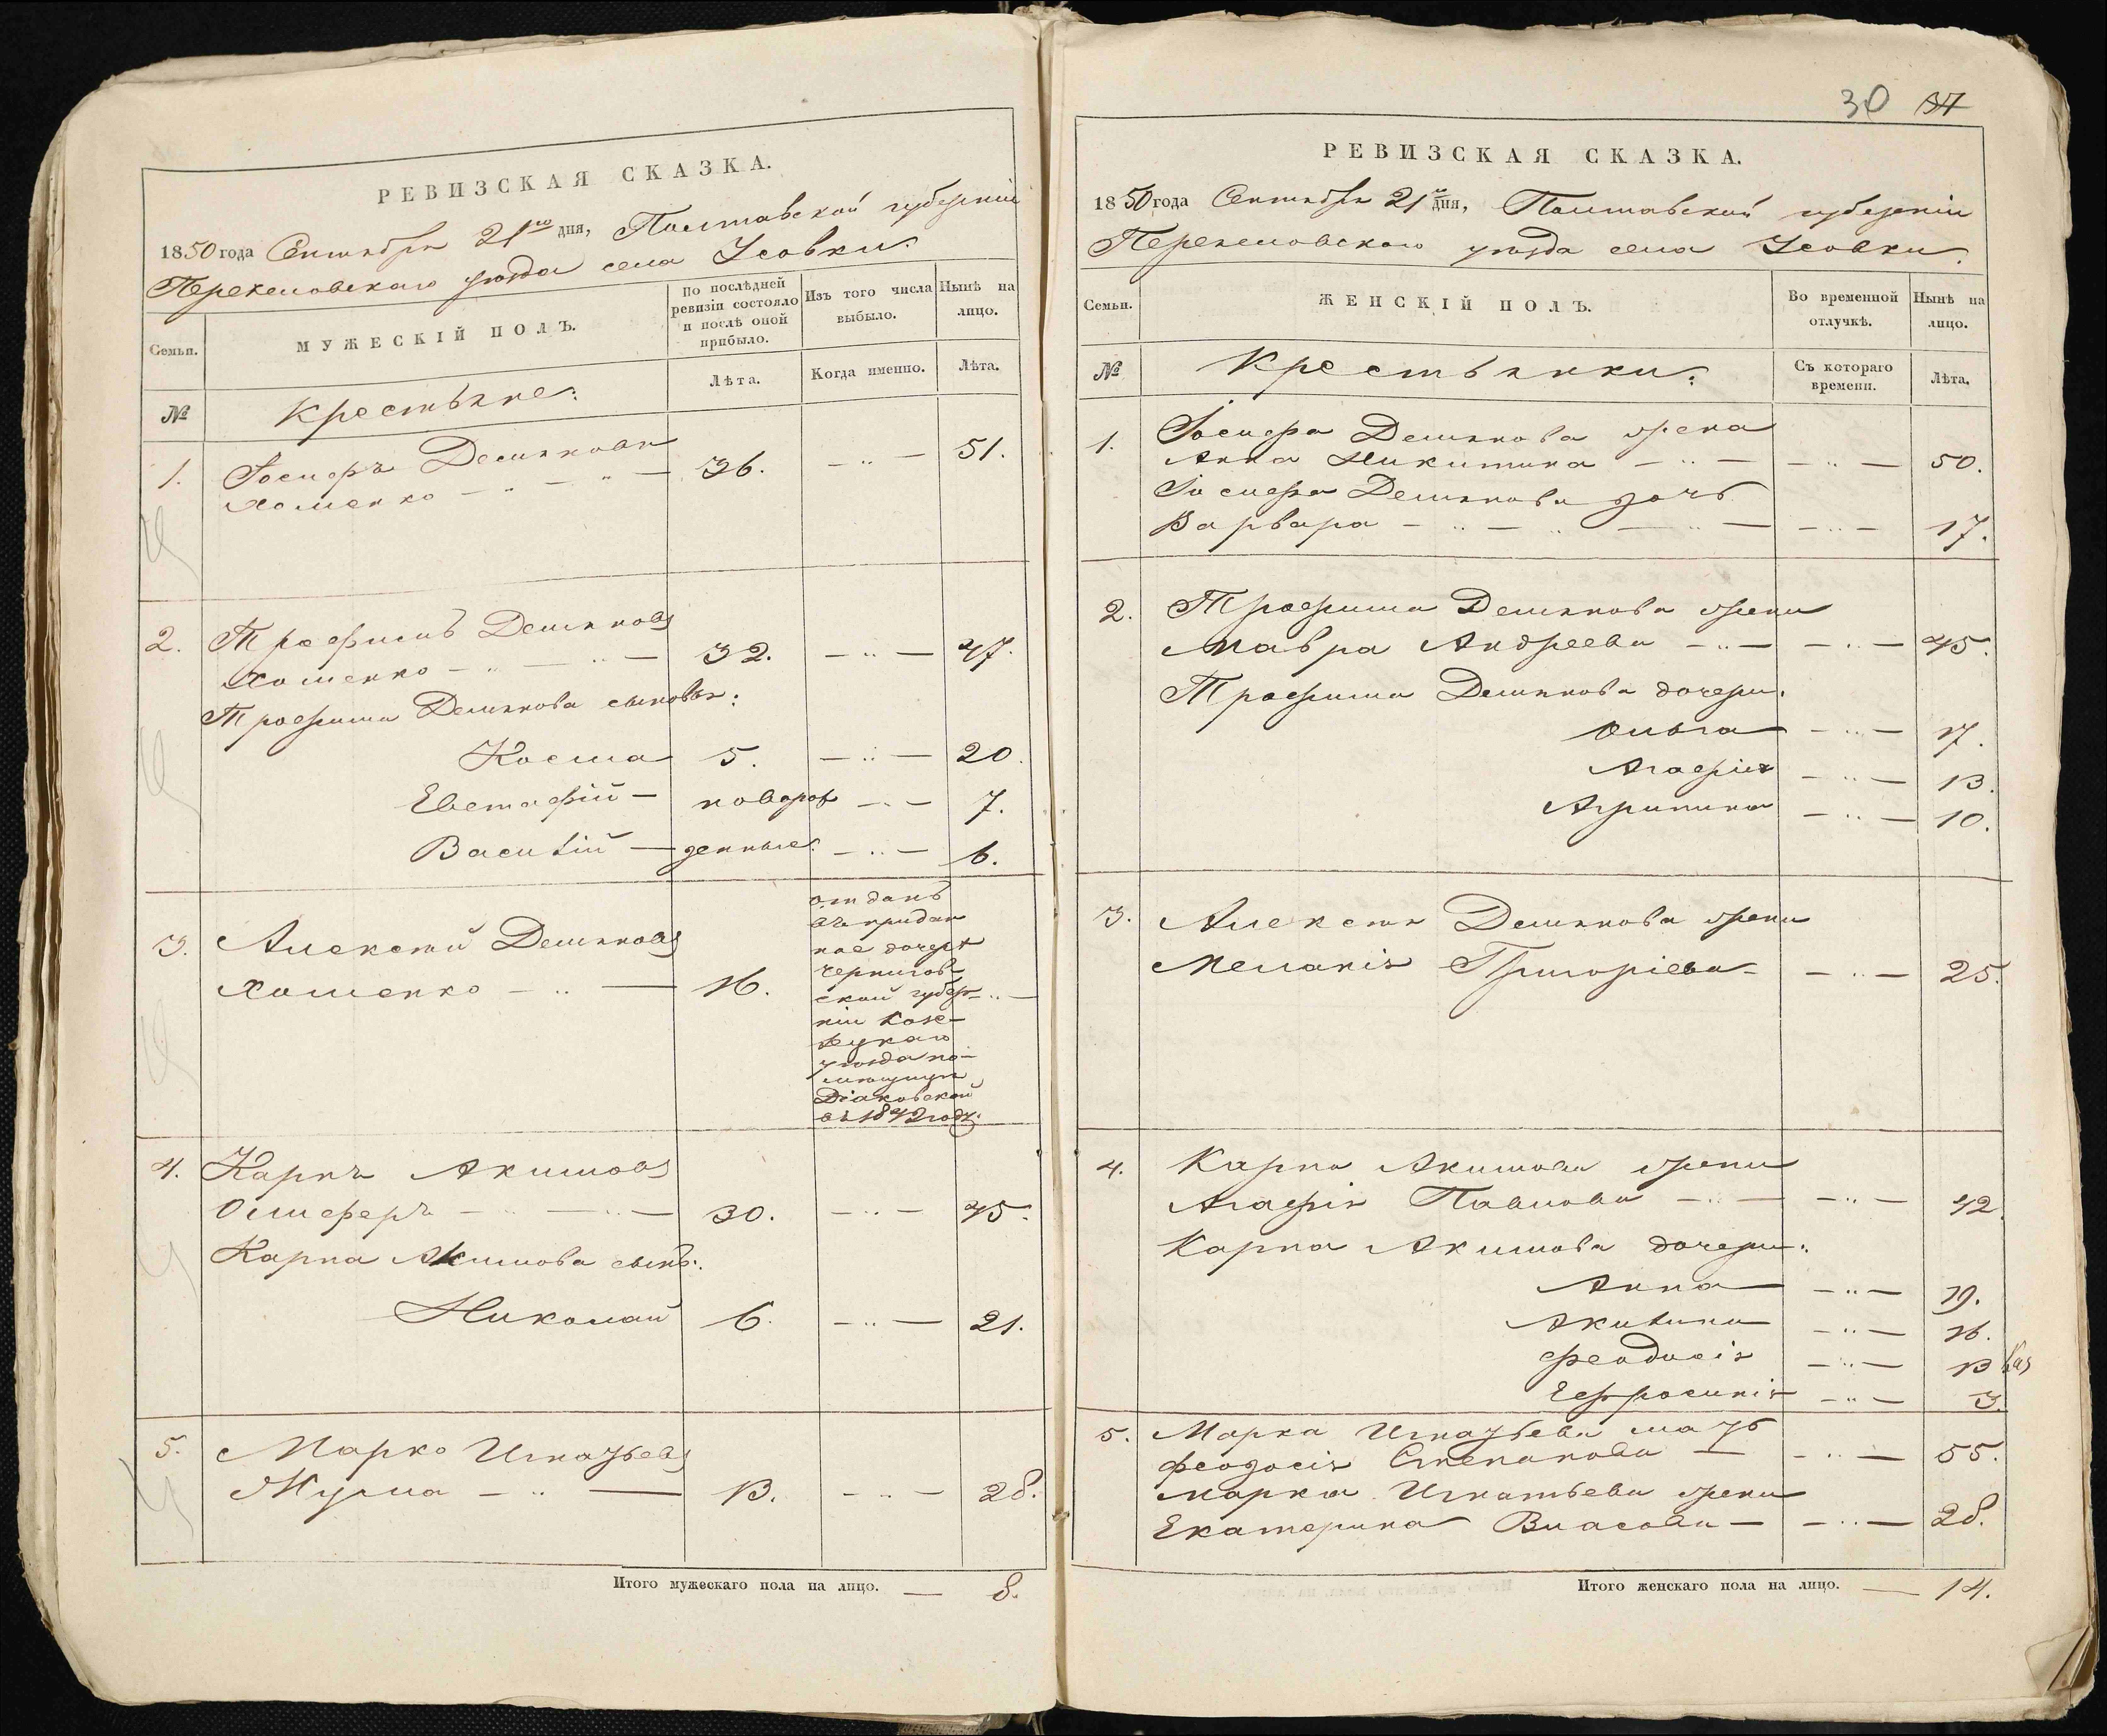 РЕВИЗСКАЯ СКАЗКА.
1850 года Сентября 21го дня, Полтавской губернiи
Переяславскаго уѣзда села Усовки.
Семьи.
МУЖЕСКIЙ ПОЛЪ.
По послѣдней ревизiи состояло и послѣ оной прибыло.
Изъ того числа выбыло.
Нынѣ на лицо.
№
Крестьяне:
Лѣта.
Когда именно.
Лѣта.
1. Iосифъ Демьяновъ
Хоменко — „ — „ — 36. — „ — 51.
2. Трофимъ Демьяновъ
Хоменко — „ — „ — 32. — „ — 47.
Трофима Демьянова сыновья:
Косма 5. — „ — 20.
Евстафiй — новорож — „ — 7.
Василiй — денные. — „ — 6.
3. Алексѣй Демьяновъ
Хоменко — „ — 16.
отданъ
въ придан
ное дочери
Чернигов
ской губер — „ —
нiи Козе-
лецкаго
уѣзда по-
мещицы
Дiаковской
въ 1842 году.
4. Карпъ Акимовъ
Олиферъ — „ — „ — 30. — „ — 45.
Карпа Акимова сынъ:
Николай 6. — „ — 21.
5. Марко Игнатьевъ
Жула — „ — 13. — „ — 28.
Итого мужескаго пола на лицо. — 8.
30 37
РЕВИЗСКАЯ СКАЗКА.
1850 года Сентября 21го дня, Полтавской губернiи
Переяславскаго уѣзда села Усовки.
Семьи.
ЖЕНСКIЙ ПОЛЪ.
Во временной отлучкѣ.
Нынѣ на лицо.
№
Крестьянки:
Съ котораго времени.
Лѣта.
1. Iосифа Демьянова жена
Анна Никитина — „ — — „ — 50.
Iосифа Демьянова дочь
Варвара — „ — „ — „ — — „ — 17.
2. Трофима Демьянова жена
Мавра Андреева — „ — — „ — 45.
Трофима Демьянова дочери:
Ольга — „ — 17.
Агафiя — „ — 13.
Агрипина — „ — 10.
3. Алексѣя Демьянова жена
Меланiя Григорiева — — „ — 25.
4. Карпа Акимова жена
Агафiя Павлова — „ — — „ — 42.
Карпа Акимова дочери:
Анна — „ — 19.
Акилина — „ — 16.
Феодосiя — „ — 13
Ефросинiя — „ — 3.
5. Марка Игнатьева мать
Феодосiя Степанова — — „ — 55.
Марка Игнатьева жена
Екатерина Власова — — „ — 28.
Итого женскаго пола на лицо. — 14.